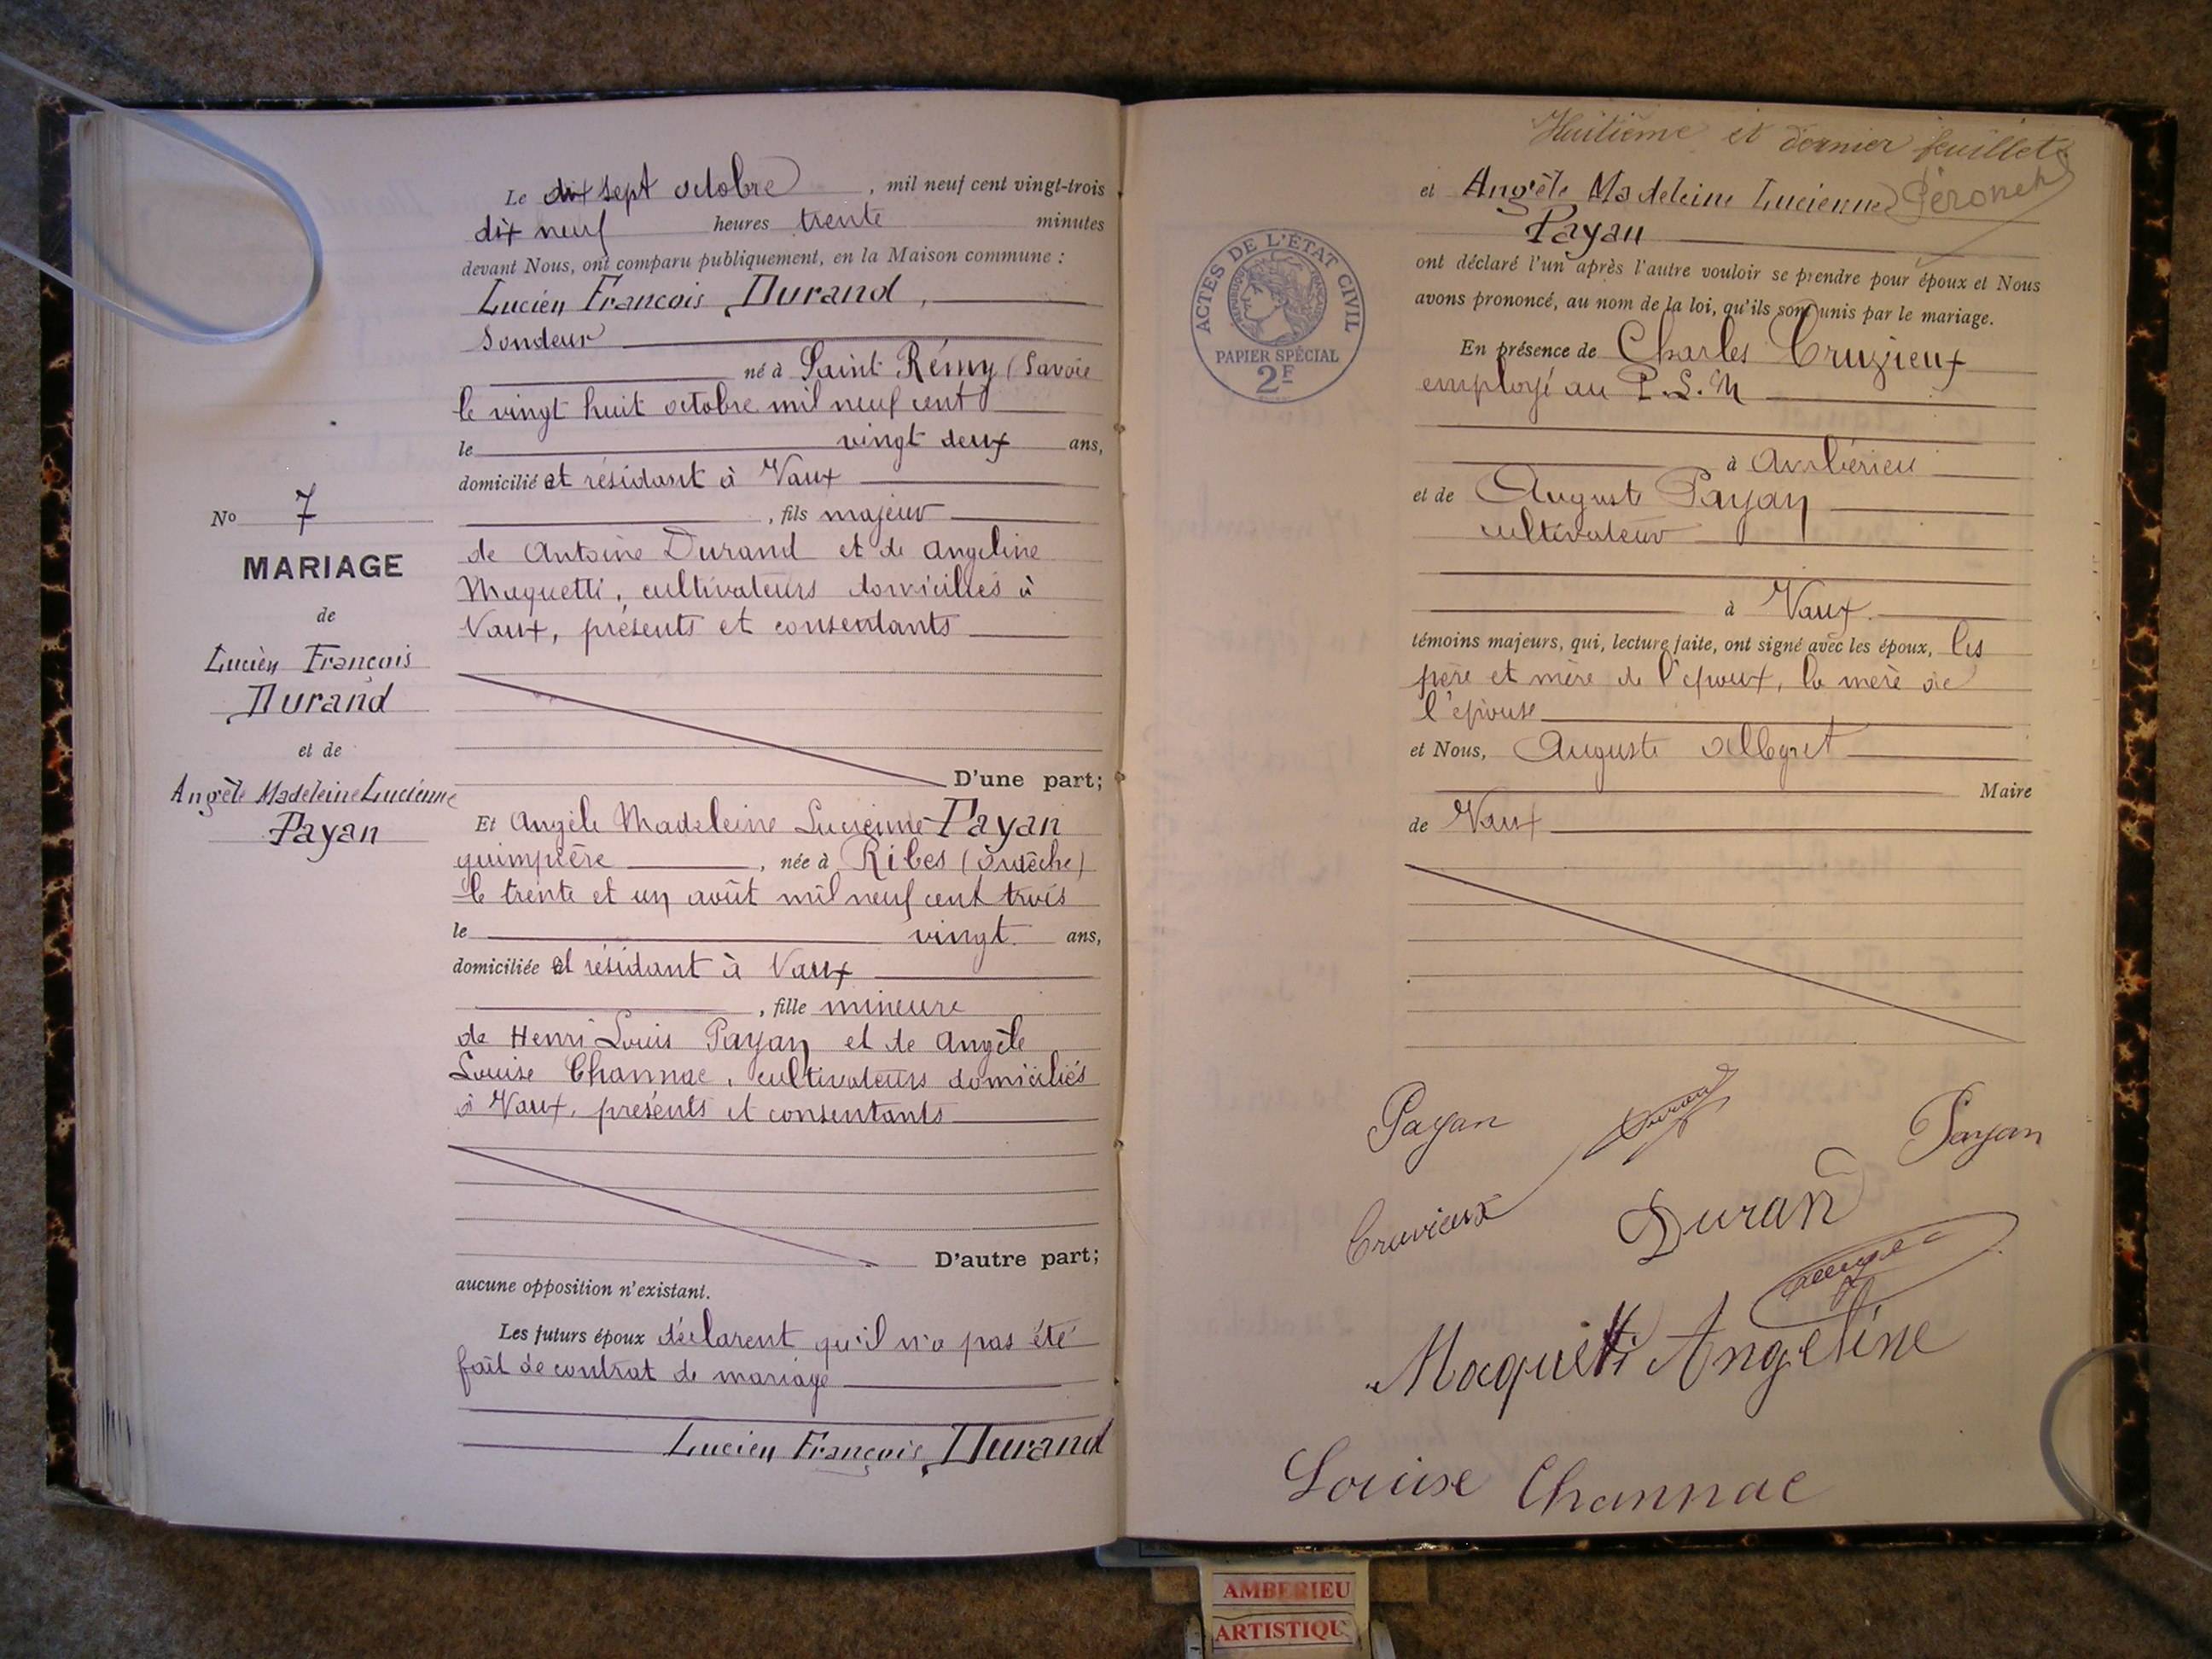 Le dix sept octobre, mil neuf cent vingt-trois
dix neuf heures trente minutes
devant Nous, ont comparu publiquement, en la Maison commune :
Lucien François Durand,
Sondeur
né à Saint Rémy (Savoie
le vingt huit octobre mil neuf cent
le vingt deux ans,
domicilié et résidant à Vaux
, fils majeur
de Antoine Durand et de Angeline
Maquetti, cultivateurs domiciliés à
Vaux, présents et consentants
D'une part;
Et Angèle Madeleine Lucienne Payan
guimpière, née à Ribes (Ardèche)
le trente et un août mil neuf cent trois
le vingt ans,
domiciliée et résidant à Vaux
, fille mineure
de Henri Louis Payan et de Angèle
Louise Channac, cultivateurs domiciliés
à Vaux, présents et consentants
D'autre part;
aucune opposition n'existant.
Les futurs époux déclarent qu'il n'a pas été
fait de contrat de mariage
Lucien François Durand
No 7
MARIAGE
de
Lucien François
Durand
et de
Angèle Madeleine Lucienne
Payan
Huitième et dernier feuillet
et Angèle Madeleine Lucienne
Payan
ont déclaré l'un après l'autre vouloir se prendre pour époux et Nous
avons prononcé, au nom de la loi, qu'ils sont unis par le mariage.
En présence de Charles Cruzieux
employé au P.L.M
à Ambérieu
et de Auguste Payan
cultivateur
à Vaux
témoins majeurs, qui, lecture faite, ont signé avec les époux, les
père et mère de l'époux, la mère de
l'épouse
et Nous, Auguste Allegret
Maire
de Vaux
ACTES DE L'ÉTAT CIVIL
PAPIER SPÉCIAL
2F
Payan Durand Payan
Cruvieux Duran
Maquetti Angeline
Louise Channac
AMBERIEU
ARTISTIQU